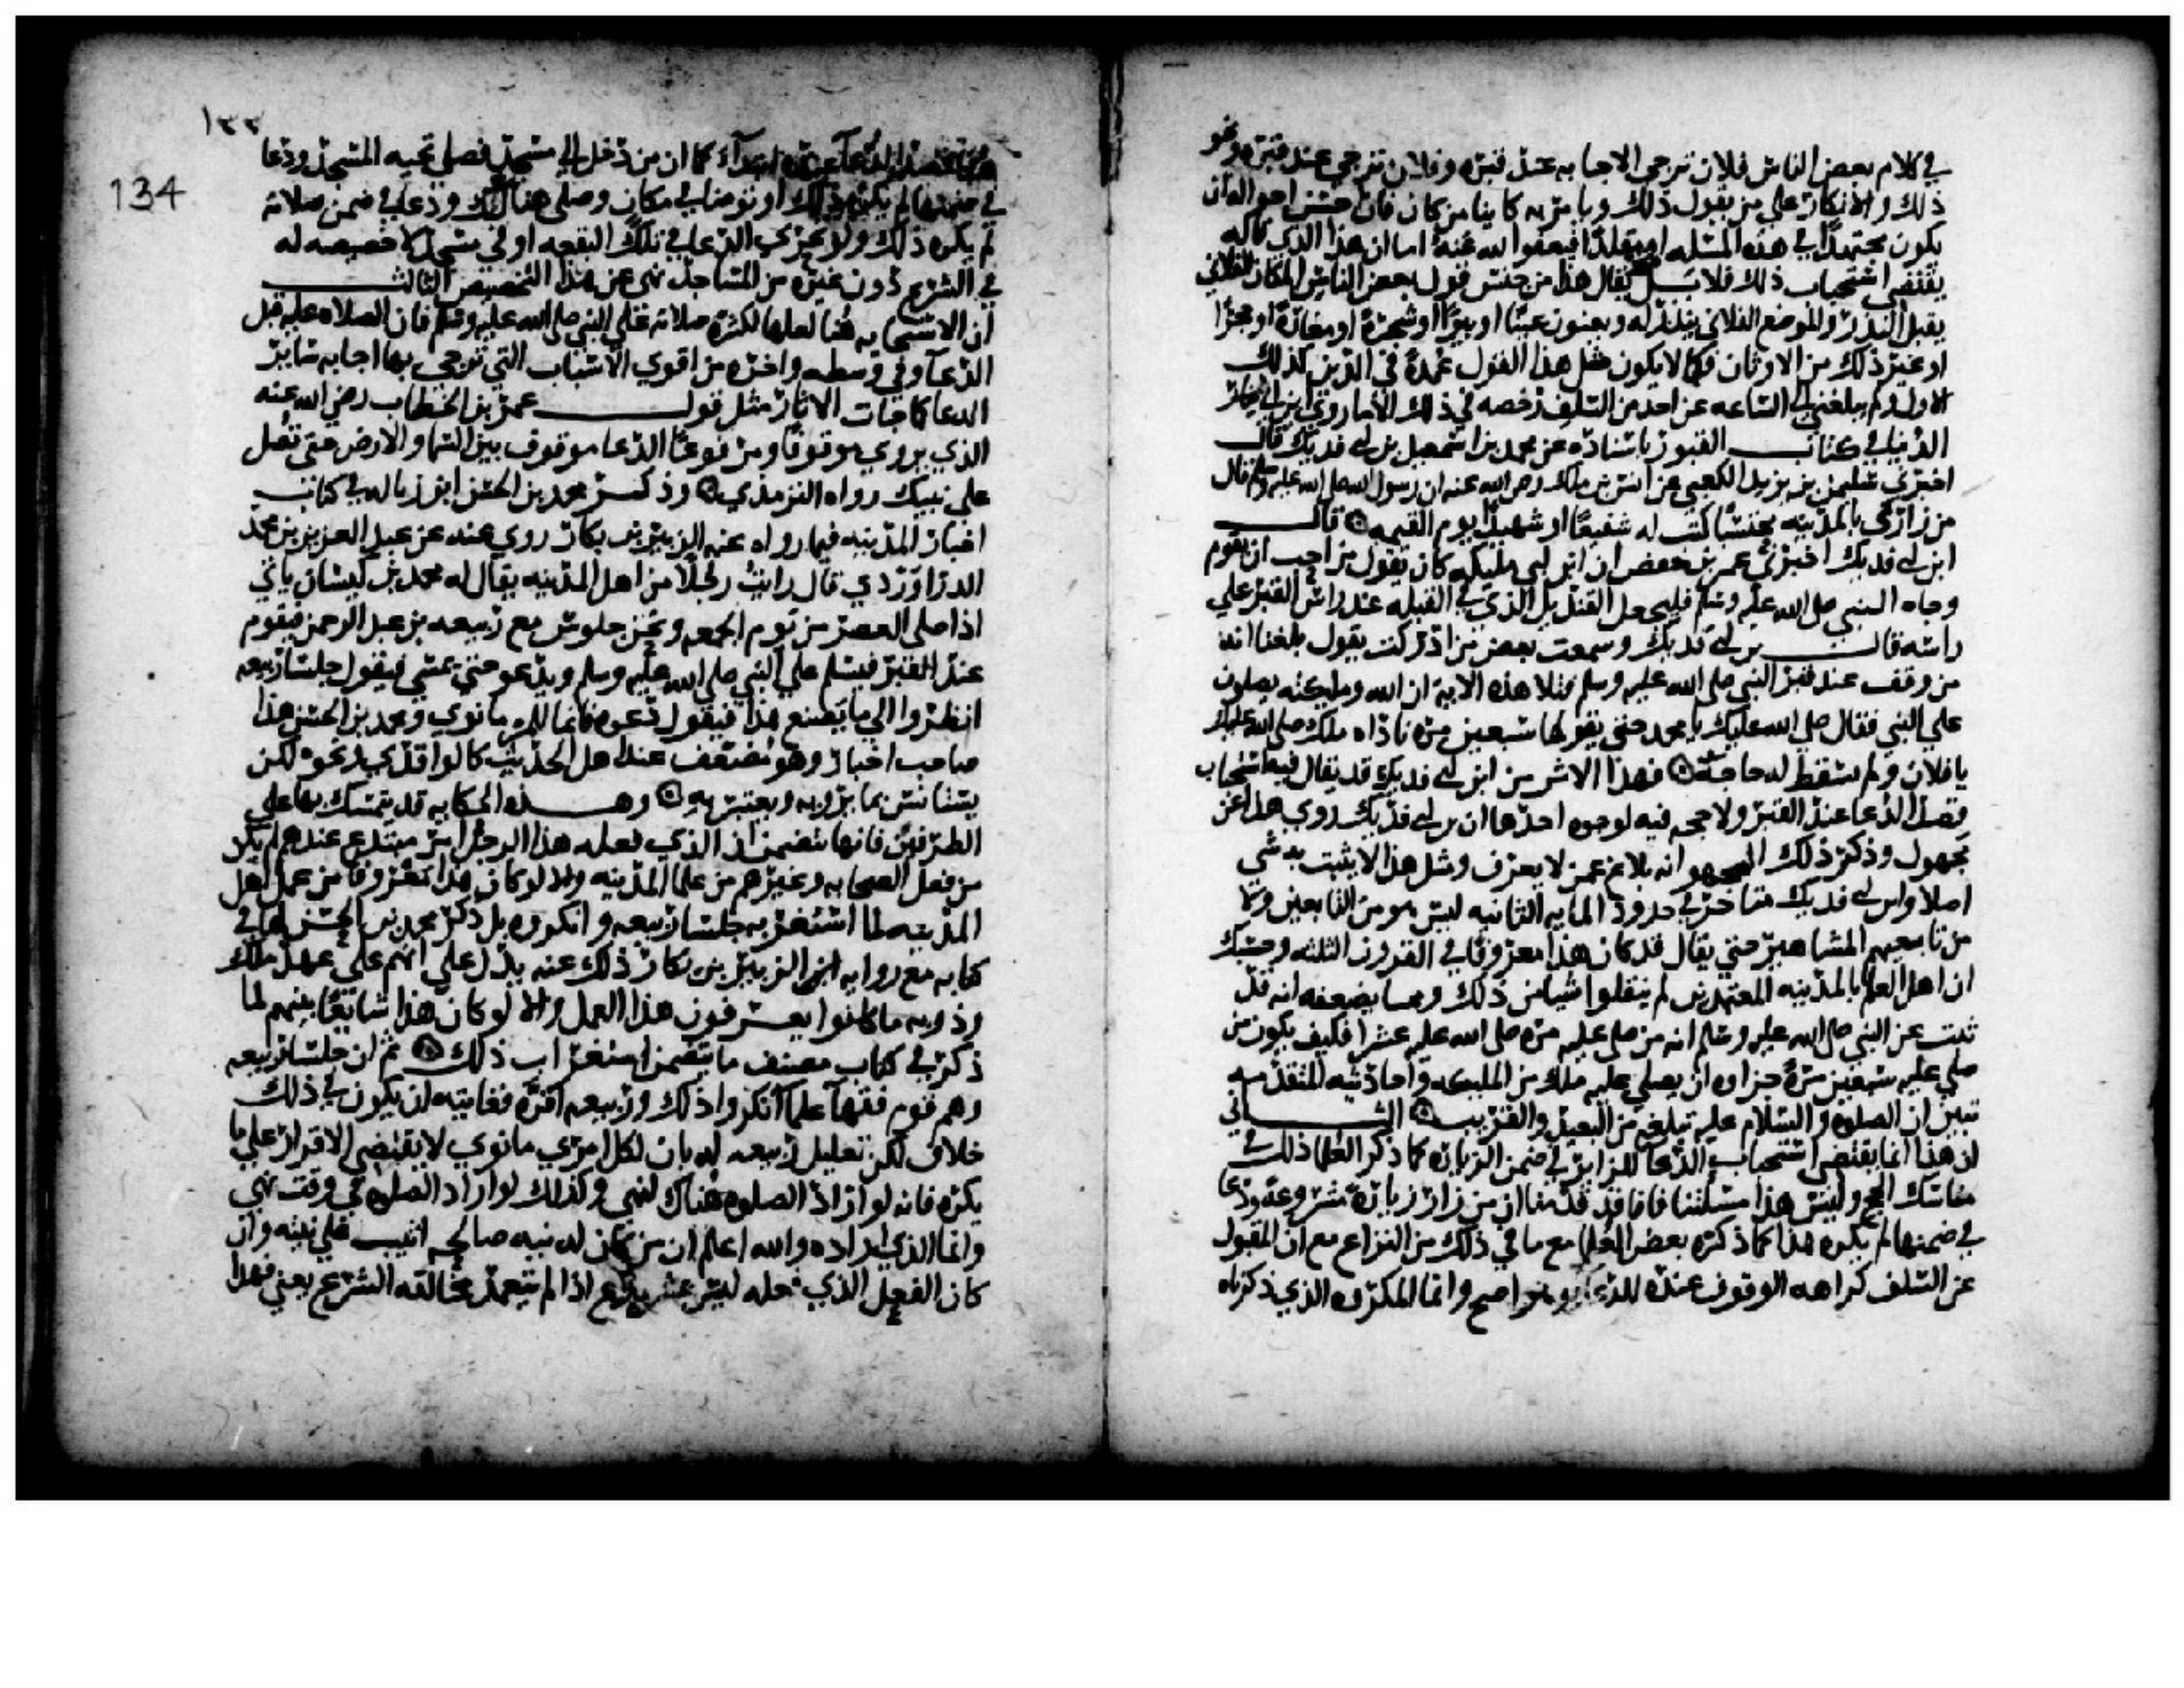 في كلام بعض الناس فلان ترجى الاجابه عند قبره وفلان ترجى عند قبره ونحو
ذلك والانكار على من يقول ذلك ويامر به كاينا من كان فان احسن احواله ان
يكون مجتهدا في هذه المسله او مقلدا فيعفوا الله عنه اما ان هذا الذي قاله
يقتضى استحباب ذلك فلا بل يقال هذا من جنس قول بعض الناس المكان الفلاني
يقبل النذر والموضع الفلاني ينذر له ويعنون عينا او بيرا او شجرة او مغارة او حجرا
او غير ذلك من الاوثان فكما لا يكون مثل هذا القول عمدة في الدين كذلك
الاول ولم يبلغني الى الساعه عن احد من السلف رخصه في ذلك الا ما روى ابن ابي
الدنيا في كتاب القبور باسناده عن محمد بن اسمعيل بن ابي فديك قال
اخبرني سليمن بن يزيد الكعبي عن انس بن ملك رضي الله عنه ان رسول الله صلى الله عليه وسلم قال
من زارني بالمدينه محتسبا كنت له شفيعا او شهيدا يوم القيمه قال
ابن ابي فديك اخبرني عمر بن حفص ان ابن ابي مليكه كان يقول من احب ان يقوم
وجاه النبي صلى الله عليه وسلم فليجعل القنديل الذي في القبله عند راس القبر على
راسه قال بن ابي فديك وسمعت بعض من ادركت يقول بلغنا انه
من وقف عند قبر النبي صلى الله عليه وسلم فتلا هذه الاية ان الله ومليكته يصلون
على النبي فقال صلى الله عليك يا محمد حتى يقولها سبعين مرة ناداه ملك صلى الله عليك
يا فلان ولم تسقط له حاجة فهذا الاثر من ابن ابي فديك قد يقال فيه استحباب
قصد الدعا عند القبر ولا حجه فيه لوجوه احدها ان بن ابي فديك روى هذا عن
مجهول وذكر ذلك المجهول انه بلاغ عمن لا يعرف ومثل هذا لا يثبت به شي
اصلا وابن ابي فديك متاخر في حدود المايه الثانيه ليس هو من التابعين ولا
من تابعيهم المشاهير حتى يقال قد كان هذا معروفا في القرون الثلثه وحسبك
ان اهل العلم بالمدينه المعتمدين لم ينقلوا شيا من ذلك ومما يضعفه انه قد
ثبت عن النبي صلى الله عليه وسلم انه من صلى عليه مره صلى الله عليه عشرا فكيف يكون من
صلى عليه سبعين مرة جزاوه ان يصلي عليه ملك من المليكه واحاديثه المتقدمه
تبين ان الصلوه والسلام عليه تبلغه من البعيد والقريب الثاني
ان هذا انما يقتضى استحباب الدعا للزاير في ضمن الزياره كما ذكر العلما ذلك في
مناسك الحج وليس هذا مسلتنا فانا قد قدمنا ان من زار زيارة مشروعة ودعا
في ضمنها لم يكره هذا كما ذكره بعض العلما مع ما في ذلك من النزاع مع ان المقبول
عن السلف كراهه الوقوف عنده للدعا وهو اصح وانما المكروه الذي ذكرناه
١٣٣
134
قصد الدعا عنده ابتدآء كما ان من دخل الى مسجد فصلى تحيه المسجد ودعا
في ضمنها لم يكره ذلك او توضا في مكان وصلى هنالك ودعا في ضمن صلاته
لم يكره ذلك ولو تحرى الدعا في تلك البقعه او في مسجد لا خصيصه له
في الشرع دون غيره من المساجد نهى عن هذا التخصيص الثالث
ان الاستجابه هنا لعلها لكثرة صلاته على النبي صلى الله عليه وسلم فان الصلاه عليه قبل
الدعآ وفي وسطه واخره من اقوى الاسباب التي ترجى بها اجابه ساير
الدعا كما جات الاثار مثل قول عمر بن الخطاب رضي الله عنه
الذي يروى موقوفا ومرفوعا الدعا موقوف بين السما والارض حتى تصل
على نبيك رواه الترمذي وذكر محمد بن الحسن ابن زباله في كتاب
اخبار المدينه فيما رواه عنه الزبير بن بكار روى عنه عن عبد العزيز بن محمد
الدراوردي قال رايت رجلا من اهل المدينه يقال له محمد بن كيسان ياتي
اذا صلى العصر من يوم الجمعه ونحن جلوس مع ربيعه بن عبد الرحمن فيقوم
عند القبر فيسلم على النبي صلى الله عليه وسلم ويدعو حتى يمسي فيقول جلسا ربيعه
انظروا الى ما يصنع هذا فيقول دعوه فانما للمرء ما نوى ومحمد بن الحسن هذا
صاحب اخبار وهو مضعف عند اهل الحديث كالواقدي ونحوه لكن
يستانس بما يرويه ويعتبر به وهذه الحكايه قد يتمسك بها على
الطرفين فانها تتضمن ان الذي فعله هذا الرجل امر مبتدع عندهم لم يكن
من فعل الصحابه وغيرهم من علما المدينه والا لو كان هذا معروفا من عمل اهل
المدينه لما استغربه جلسا ربيعه وانكروه بل ذكر محمد بن الحسن لها في
كتابه مع روايه الزبير بن بكار ذلك عنه يدل على انهم على عهد ملك
وذويه ما كانوا يعرفون هذا العمل والا لو كان هذا شايعا بينهم لما
ذكر في كتاب مصنف ما يتضمن استغراب ذلك ثم ان جلسا ربيعه
وهم قوم فقهآ علمآ انكروا ذلك وربيعه اقره فغايته ان يكون في ذلك
خلاف لكن تعليل ربيعه له بان لكل امري ما نوى لا يقتضى الاقرار على ما
يكره فانه لو اراد الصلوه هناك لنهى وكذلك لو اراد الصلوه في وقت نهي
وانما الذي اراده والله اعلم ان من كان له نيه صالحه اثيب على نيته وان
كان الفعل الذي فعله ليس بمشروع اذا لم يتعمد مخالفه الشرع يعني فهذا